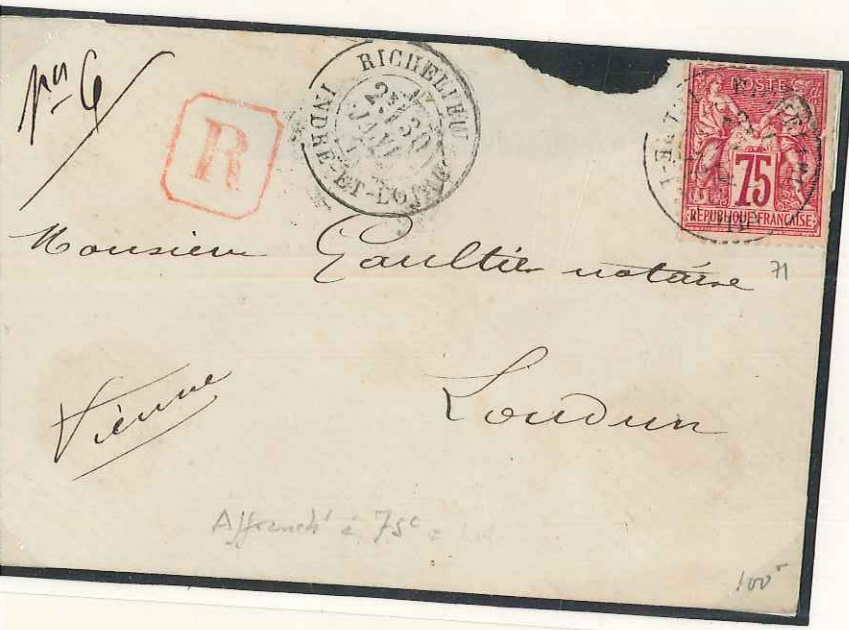 RICHELIEU
2E
30
JANV
INDRE-ET-LOIRE
R
POSTES
75
REPUBLIQUE FRANCAISE
Monsieur Gaultier notaire
71
Loudun
Vienne
Affranchi à 75c
100